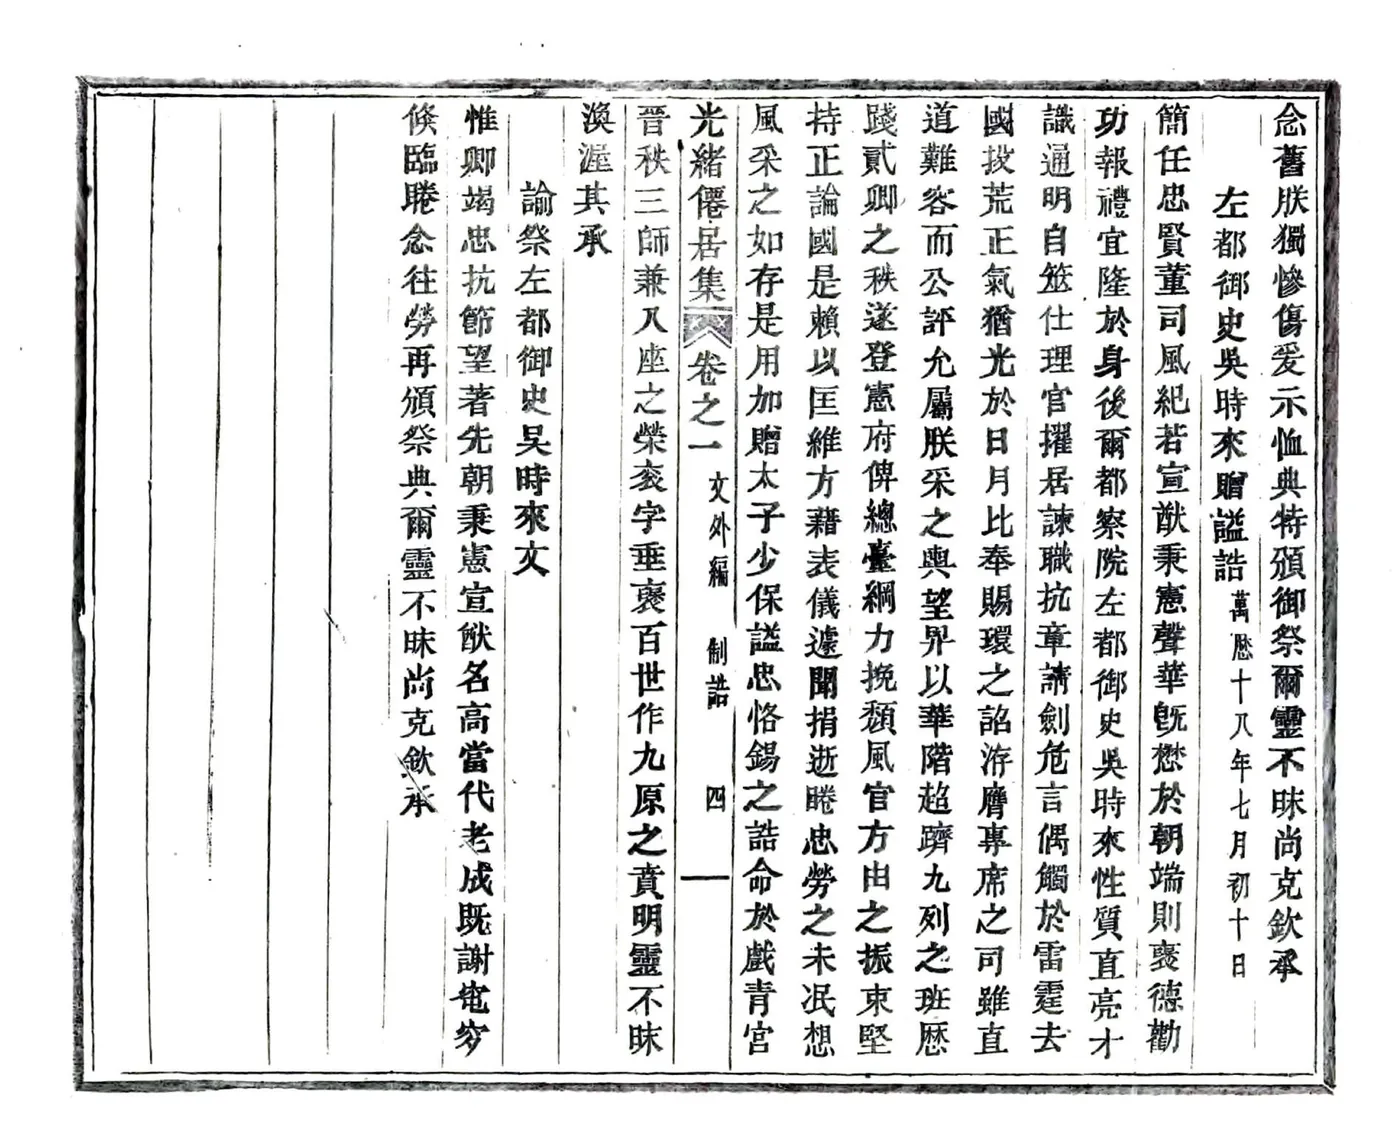 念舊朕獨慘傷爰示恤典特頒御祭爾靈不昧尚克欽承
左都御史吳時來贈謚誥萬歷十八年七月初十日
簡任忠賢董司風紀若宣猷秉憲聲華旣懋於朝端則襃德勸
功報禮宜隆於身後爾都察院左都御史吳時來性質直亮才
識通明自筮仕理官擢居諫職抗章請劍危言偶觸於雷霆去
國投荒正氣猶光於日月比奉賜環之詔洊膺專席之司雖直
道難容而公評允屬朕采之輿望畀以華階超躋九列之班歷
踐貳卿之秩遂登憲府俾總臺綱力挽頹風官方由之振朿堅
持正論國是賴以匡維方藉表儀遽聞捐逝睠忠勞之未泯想
風采之如存是用加贈太子少保謚忠恪錫之誥命於戲青宮
光緒僊居集 卷之一 文外編 制誥 四
晉秩三師兼八座之榮袞字垂襃百世作九原之賁明靈不昧
渙渥其承
諭祭左都御史吳時來文
惟卿竭忠抗節望著先朝秉憲宣猷名高當代老成旣謝窀穸
倏臨睠念往勞再頒祭典爾靈不昧尚克欽承